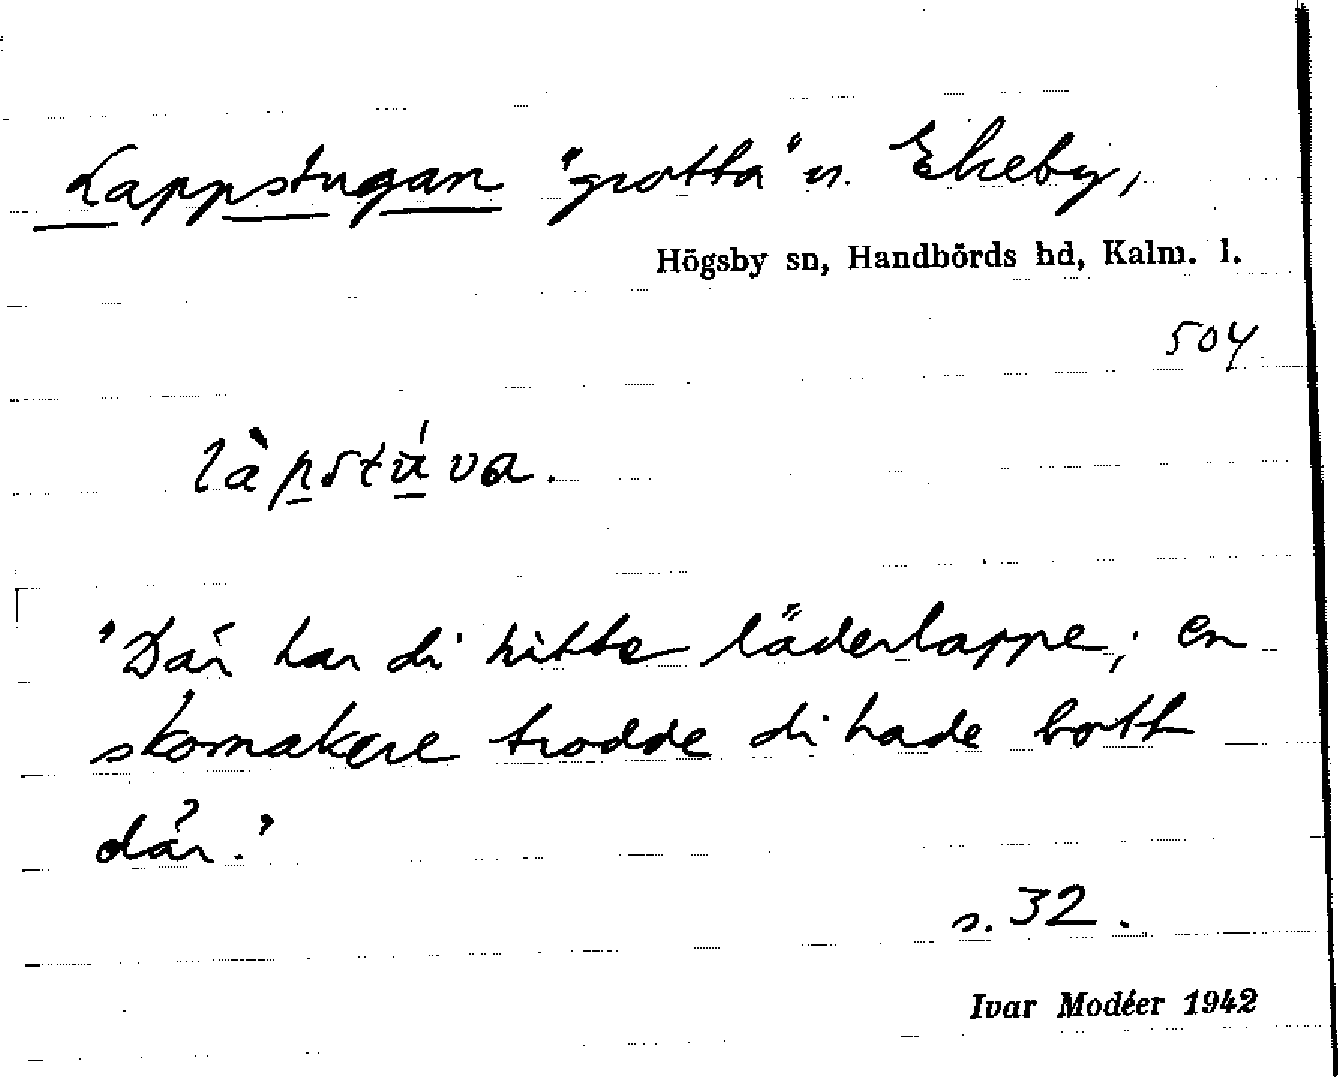 Lappstugan "grotta" n. Ekeby,
Högsby sn, Handbörds hd, Kalm. l.
504
làpstúva.
"Där har di hitte läderlappe; en
skomakere trodde di hade bott
där."
s. 32.
Ivar Modéer 1942